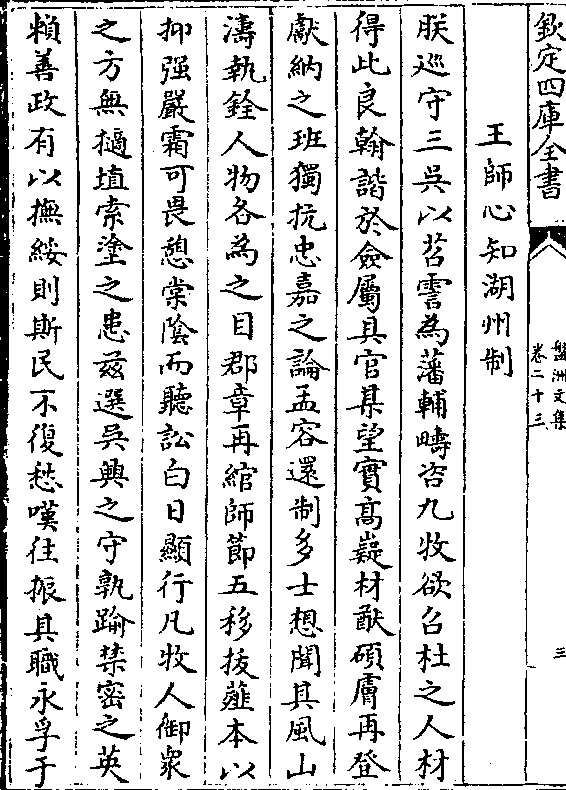 欽定四庫全書
盤洲文集
卷二十三
三
王師心知湖州制
朕巡守三吳以苕霅為藩輔疇咨九牧欲召杜之人材
得此良翰諧於僉屬具官某望實高嶷材猷碩膚再登
獻納之班獨抗忠嘉之論孟容還制多士想聞其風山
濤執銓人物各為之目郡章再綰師節五移拔薤本以
抑强嚴霜可畏憩棠陰而聽訟白日顯行凡牧人御衆
之方無擿埴索塗之患兹選吳興之守孰踰禁密之英
頼善政有以撫綏則斯民不復愁嘆往振其職永孚于